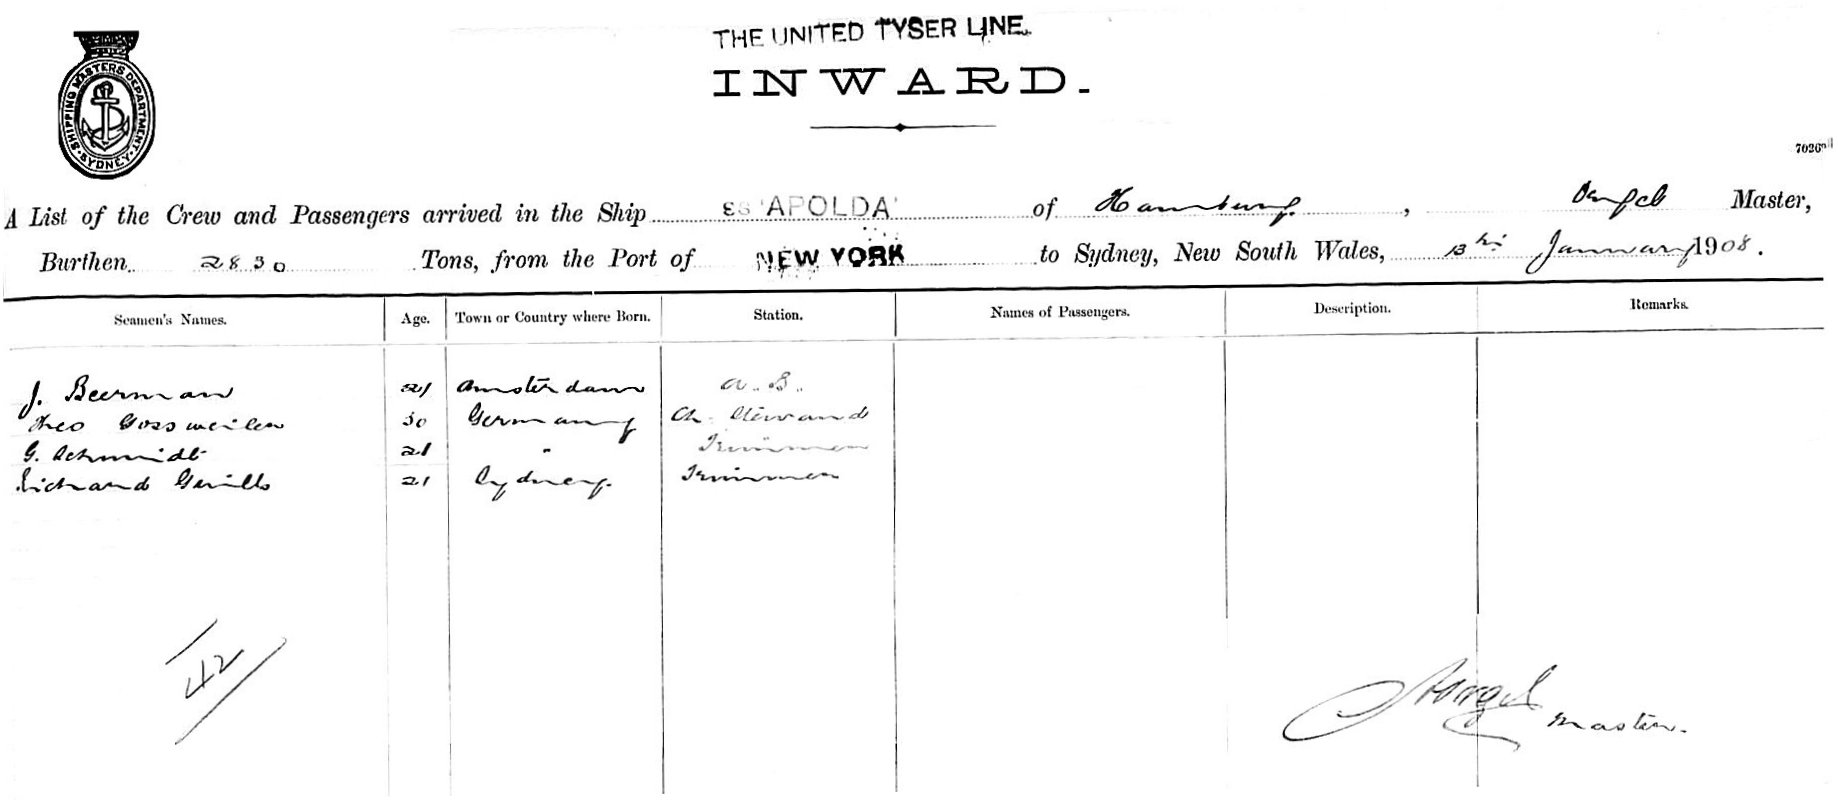 THE UNITED TYSER LINE.
INWARD.
SHIPPING MASTERS DEPARTMENT
SYDNEY
A List of the Crew and Passengers arrived in the Ship SS 'APOLDA' of Hamburg, Master,
Burthen 2830 Tons, from the Port of NEW YORK to Sydney, New South Wales, 13th January 1908.
Seamen's Names. Age. Town or Country where Born. Station. Names of Passengers. Description. Remarks.
J. Beerman 21 Amsterdam A.B.
Theo Gossweiler 30 Germany Ch. Steward
G. Schmidt 21 " Trimmer
Richard 21 Sydney. Trimmer
42
Master.